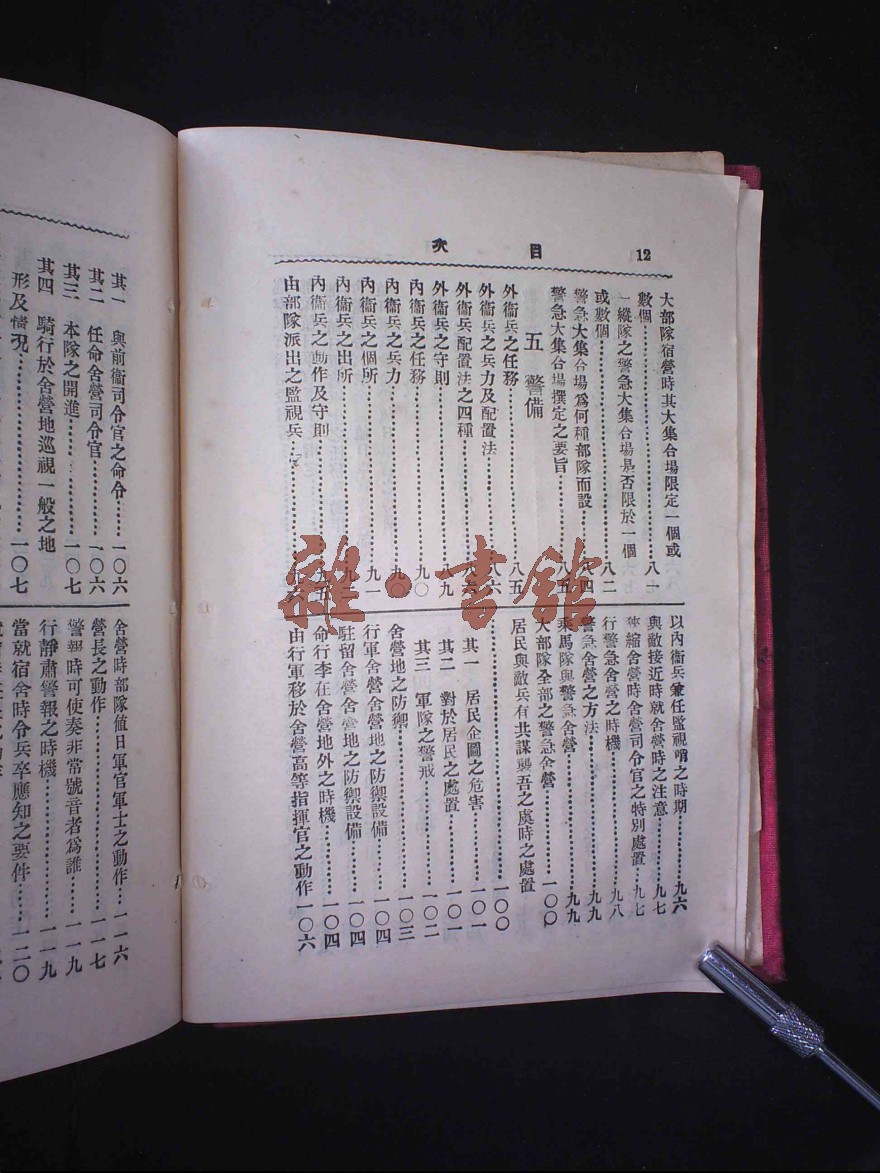 12 目次
大部隊宿營時其大集合場限定一個或
數個……八一
一縱隊之警急大集合場是否限於一個
或數個……八二
警急大集合場爲何種部隊而設……八四
警急大集合場撰定之要旨……八五
五 警備
外衞兵之任務……八五
外衞兵之兵力及配置法……八六
外衞兵配置法之四種……八六
外衞兵之守則……八九
內衞兵之任務……九〇
內衞兵之兵力……九〇
內衞兵之個所……九一
內衞兵之出所……九二
內衞兵之動作及守則……九五
由部隊派出之監視兵……
以內衞兵兼任監視哨之時期……九六
與敵接近時就舍營時之注意……九七
縮舍營時舍營司令官之特別處置……九七
行警急舍營之時機……九八
警急舍營之方法……九九
乘馬隊與警急舍營……九九
大部隊全部之警急舍營……一〇〇
居民與敵兵有共謀襲吾之虞時之處置
……一〇〇
其一 居民企圖之危害……一〇一
其二 對於居民之處置……一〇一
其三 軍隊之警戒……一〇二
舍營地之防禦……一〇三
行軍舍營舍營地之防禦設備……一〇四
駐留舍營舍營地之防禦設備……一〇四
命行李在舍營地外之時機……一〇四
由行軍移於舍營高等指揮官之動作 一〇六
其一 與前衞司令官之命令……一〇六
其二 任命舍營司令官……一〇六
其三 本隊之開進……一〇七
其四 騎行於舍營地巡視一般之地
形及情況……一〇七
舍營時部隊值日軍官軍士之動作……一一六
營長之動作……一一七
警報時可使奏非常號音者爲誰……一一九
行靜肅警報之時機……一一九
當就宿舍時令兵卒應知之要件……一二〇
雜·書館